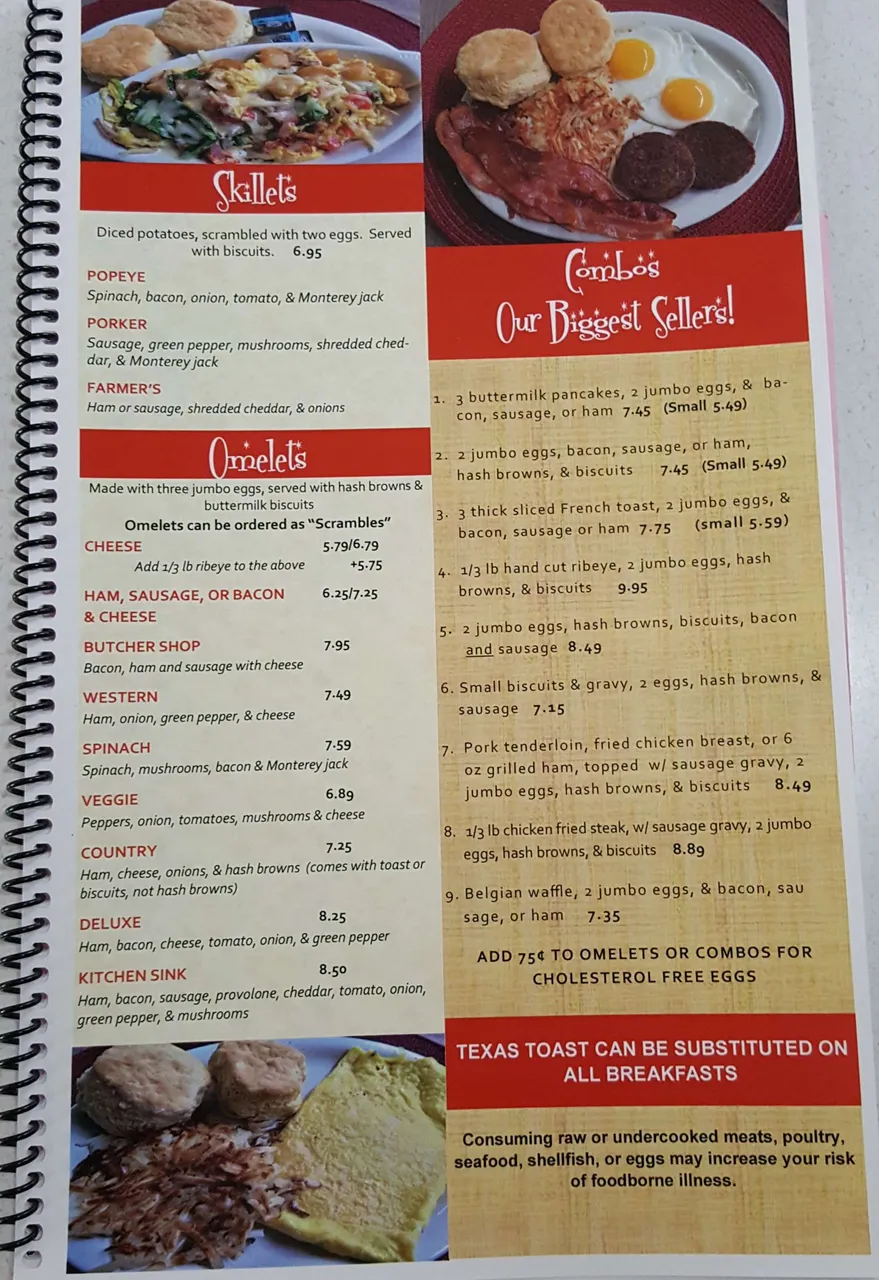 Skillets
Diced potatoes, scrambled with two eggs. Served
with biscuits. 6.95
POPEYE
Spinach, bacon, onion, tomato, & Monterey jack
PORKER
Sausage, green pepper, mushrooms, shredded ched-
dar, & Monterey jack
FARMER'S
Ham or sausage, shredded cheddar, & onions
Omelets
Made with three jumbo eggs, served with hash browns &
buttermilk biscuits
Omelets can be ordered as "Scrambles"
CHEESE 5.79/6.79
Add 1/3 lb ribeye to the above +5.75
HAM, SAUSAGE, OR BACON 6.25/7.25
& CHEESE
BUTCHER SHOP 7.95
Bacon, ham and sausage with cheese
WESTERN 7.49
Ham, onion, green pepper, & cheese
SPINACH 7.59
Spinach, mushrooms, bacon & Monterey jack
VEGGIE 6.89
Peppers, onion, tomatoes, mushrooms & cheese
COUNTRY 7.25
Ham, cheese, onions, & hash browns (comes with toast or
biscuits, not hash browns)
DELUXE 8.25
Ham, bacon, cheese, tomato, onion, & green pepper
KITCHEN SINK 8.50
Ham, bacon, sausage, provolone, cheddar, tomato, onion,
green pepper, & mushrooms
Combos
Our Biggest Sellers!
1. 3 buttermilk pancakes, 2 jumbo eggs, & ba-
con, sausage, or ham 7.45 (Small 5.49)
2. 2 jumbo eggs, bacon, sausage, or ham,
hash browns, & biscuits 7.45 (Small 5.49)
3. 3 thick sliced French toast, 2 jumbo eggs, &
bacon, sausage or ham 7.75 (small 5.59)
4. 1/3 lb hand cut ribeye, 2 jumbo eggs, hash
browns, & biscuits 9.95
5. 2 jumbo eggs, hash browns, biscuits, bacon
and sausage 8.49
6. Small biscuits & gravy, 2 eggs, hash browns, &
sausage 7.15
7. Pork tenderloin, fried chicken breast, or 6
oz grilled ham, topped w/ sausage gravy, 2
jumbo eggs, hash browns, & biscuits 8.49
8. 1/3 lb chicken fried steak, w/ sausage gravy, 2 jumbo
eggs, hash browns, & biscuits 8.89
9. Belgian waffle, 2 jumbo eggs, & bacon, sau
sage, or ham 7.35
ADD 75¢ TO OMELETS OR COMBOS FOR
CHOLESTEROL FREE EGGS
TEXAS TOAST CAN BE SUBSTITUTED ON
ALL BREAKFASTS
Consuming raw or undercooked meats, poultry,
seafood, shellfish, or eggs may increase your risk
of foodborne illness.